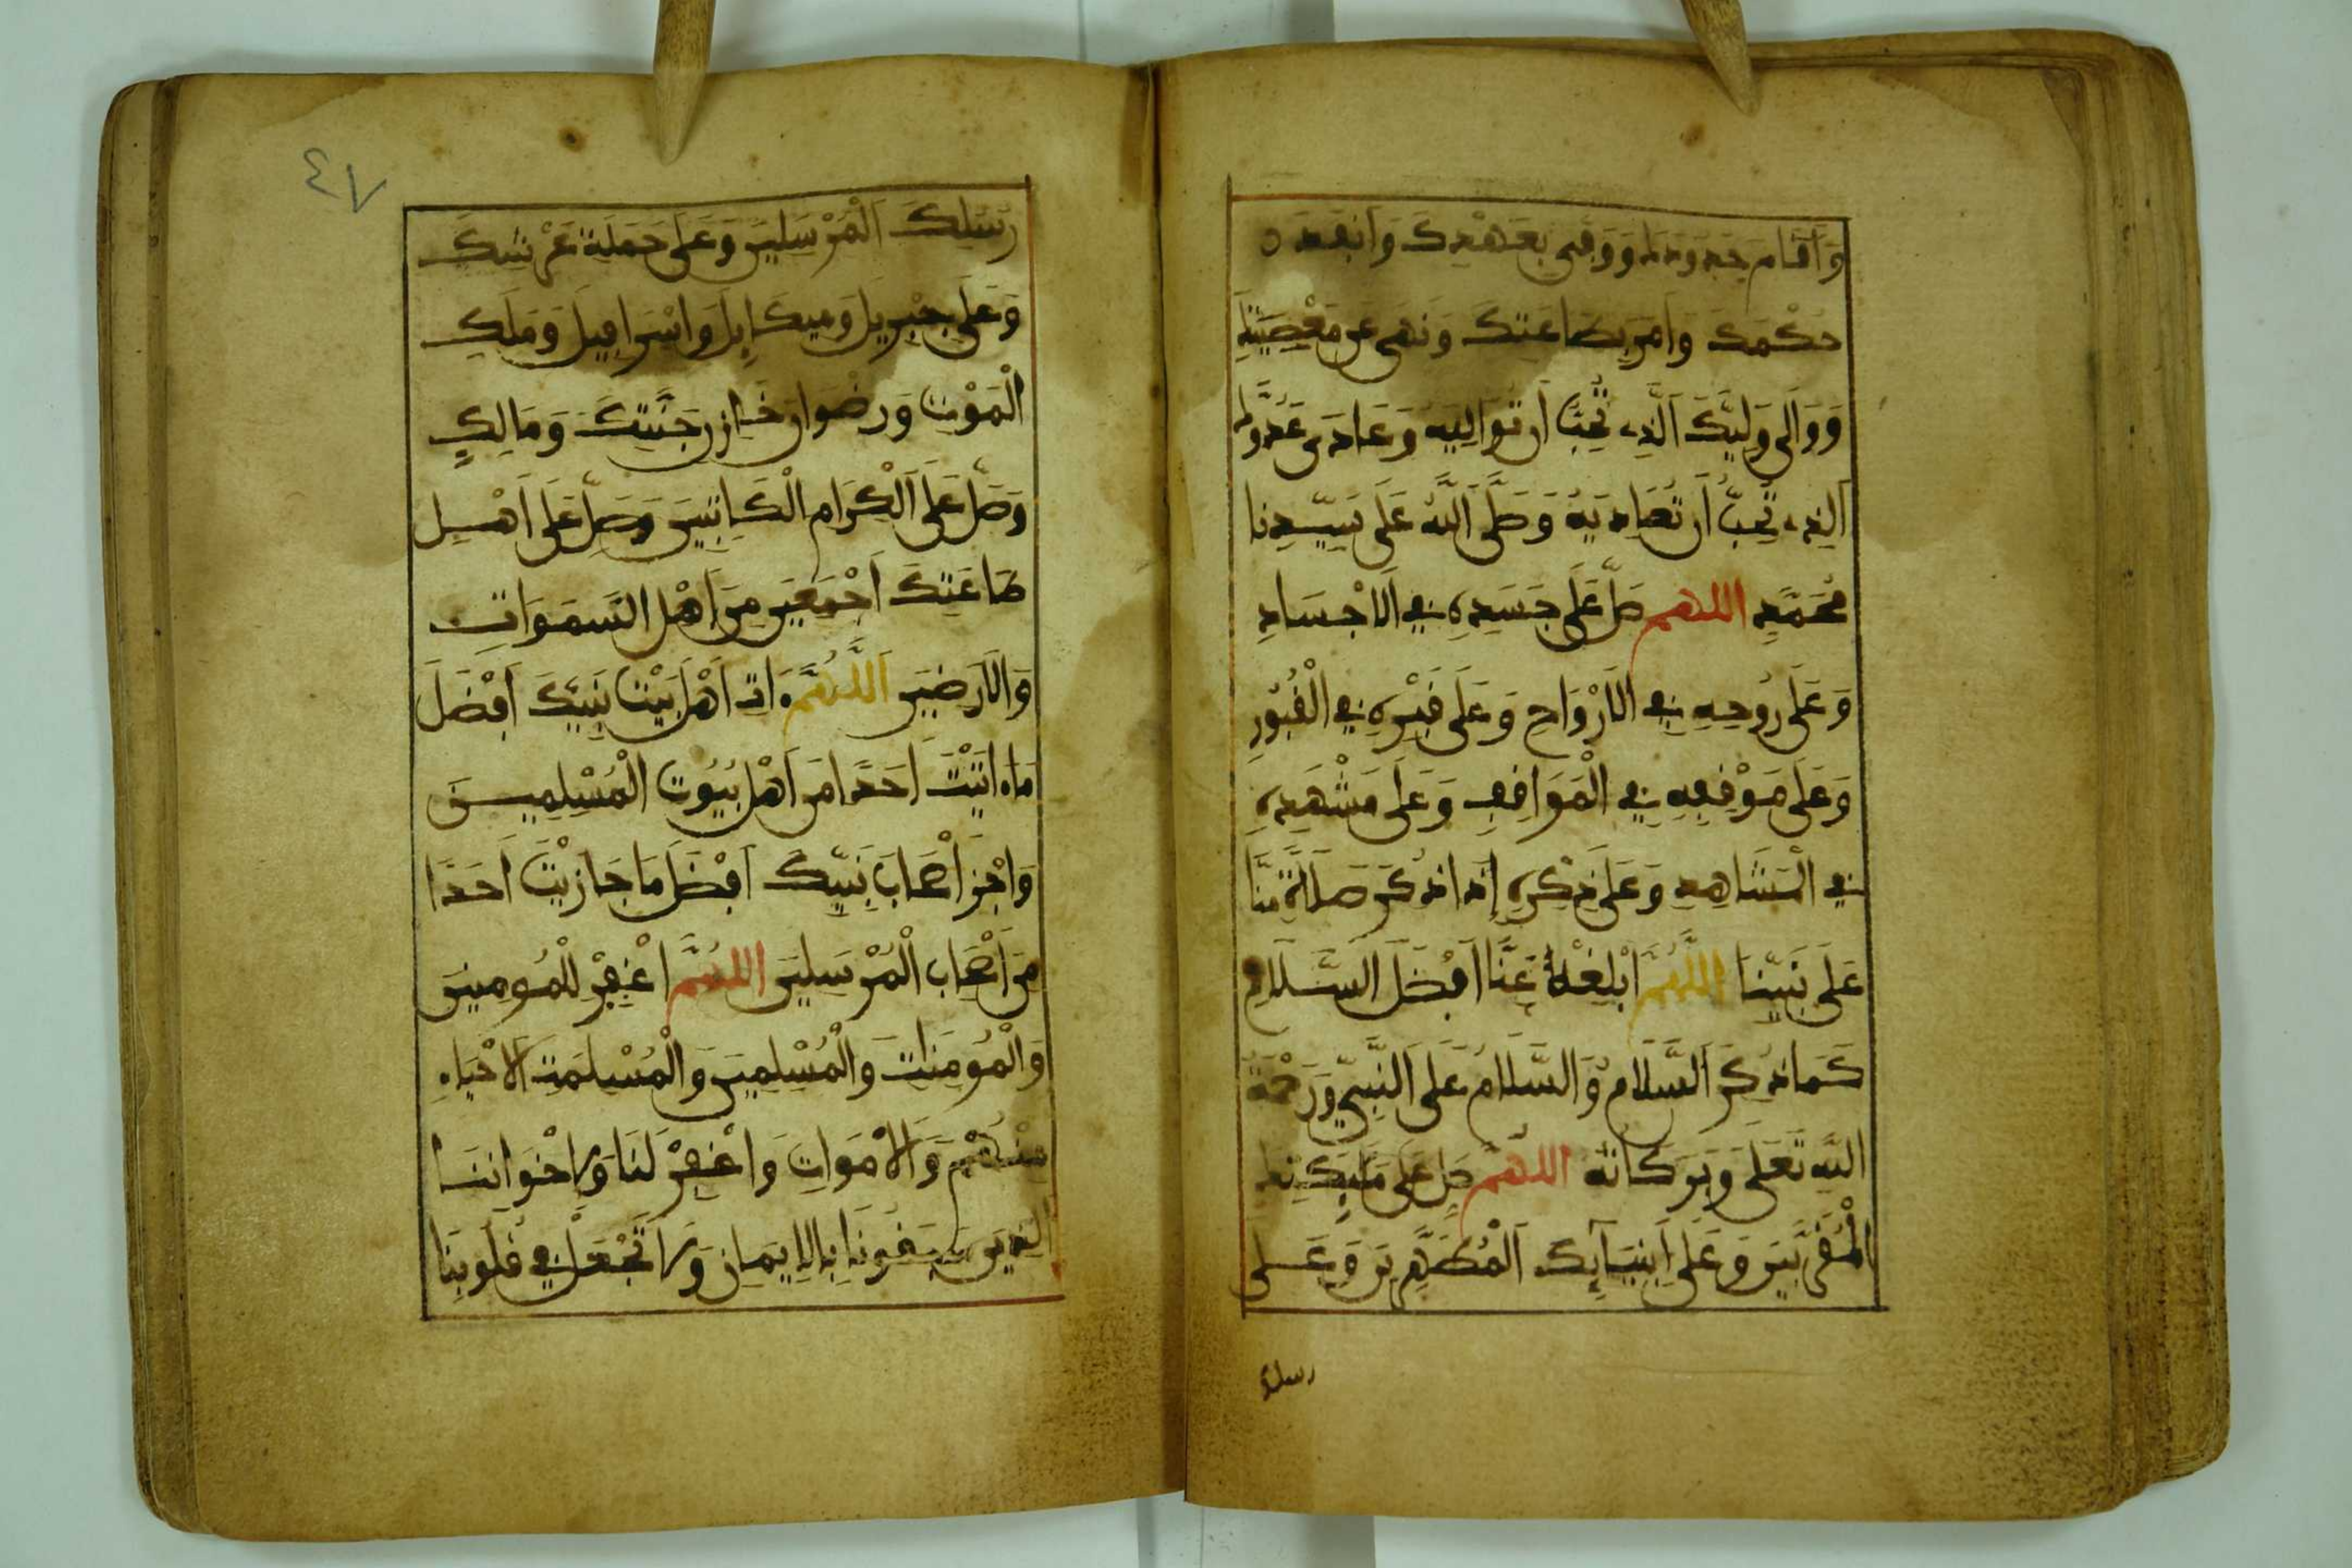 وَأَقَامَ حُدُودَكَ وَوَفَى بِعَهْدِكَ وَأَنْفَذَ
حُكْمَكَ وَأَمَرَ بِطَاعَتِكَ وَنَهَى عَن مَعْصِيَتِكَ
وَوَالَى وَلِيَّكَ الَّذِي تُحِبُّ أَن تُوَالِيَهُ وَعَادَى عَدُوَّكَ
الَّذِي تُحِبُّ أَن تُعَادِيَهُ وَصَلَّى اللَّهُ عَلَى سَيِّدِنَا
مُحَمَّدٍ اللهم صَلِّ عَلَى جَسَدِهِ فِي الَاجْسَادِ
وَعَلَى رُوحِهِ فِي الَارْوَاحِ وَعَلَى قَبْرِهِ فِي الْقُبُورِ
وَعَلَى مَوْقِفِهِ فِي الْمَوَاقِفِ وَعَلَى مَشْهَدِهِ
فِي الْمَشَاهِدِ وَعَلَى ذِكْرِهِ إِذَا ذُكِرَ صَلَاةً مِّنَّا
عَلَى نَبِيِّنَا اللَّهُمَّ أَبْلِغْهُ عَنَّا أَفْضَلَ السَّلَامِ
كَمَا ذُكِرَ السَّلَامُ وَالسَّلَامُ عَلَى النَّبِيِّ وَرَحْمَةُ
اللَّهِ تَعَلَى وَبَرَكَاتُهُ اللَّهُمَّ صَلِّ عَلَى مَلَئِكَتِكَ
الْمُقَرَّبِينَ وَعَلَى أَنْبِيَائِكَ الْمُطَهَّرِينَ وَعَلَى
رسلك
٤٧
رُسُلِكَ الْمُرْسَلِينَ وَعَلَى حَمَلَةِ عَرْشِكَ
وَعَلَى جِبْرِيلَ وَمِيكَائِلَ وَإسْرَافِيلَ وَمَلَكِ
الْمَوْتِ وَرِضْوَانَ خَازِنِ جَنَّتِكَ وَمَالِكٍ
وَصَلِّ عَلَى الْكِرَامِ الْكَاتِبِينَ وَصَلِّ عَلَى أَهْلِ
طَاعَتِكَ أَجْمَعِينَ مِنَ أَهْلِ السَّمَوَاتِ
وَالَارَضِينَ اللَّهُمَّ ءَاتِ أَهْلَ بَيْتِ نَبِيِّكَ أَفْضَلَ
مَا ءَاتَيْتَ أَحَدًا مِنَ أَهْلِ بُيُوتِ الْمُسْلِمِينَ
وَاجْزِ أَصْحَابَ نَبِيِّكَ أَفْضَلَ مَا جَازَيْتَ أَحَدًا
مِنَ أَصْحَابِ الْمُرْسَلِينَ اللَّهُمَّ اغْفِرْ لِلْمُومِنِينَ
وَالْمُومِنَاتِ وَالْمُسْلِمِينَ وَالْمُسْلِمَتِ الَاحْيَاءِ
مِنْهُمْ وَالَامْوَاتِ وَاغْفِرْ لَنَا وَلِإِخْوَانِنَا
الَّذِينَ سَبَقُونَا بِالِايمَانِ وَلَا تَجْعَلْ فِي قُلُوبِنَا